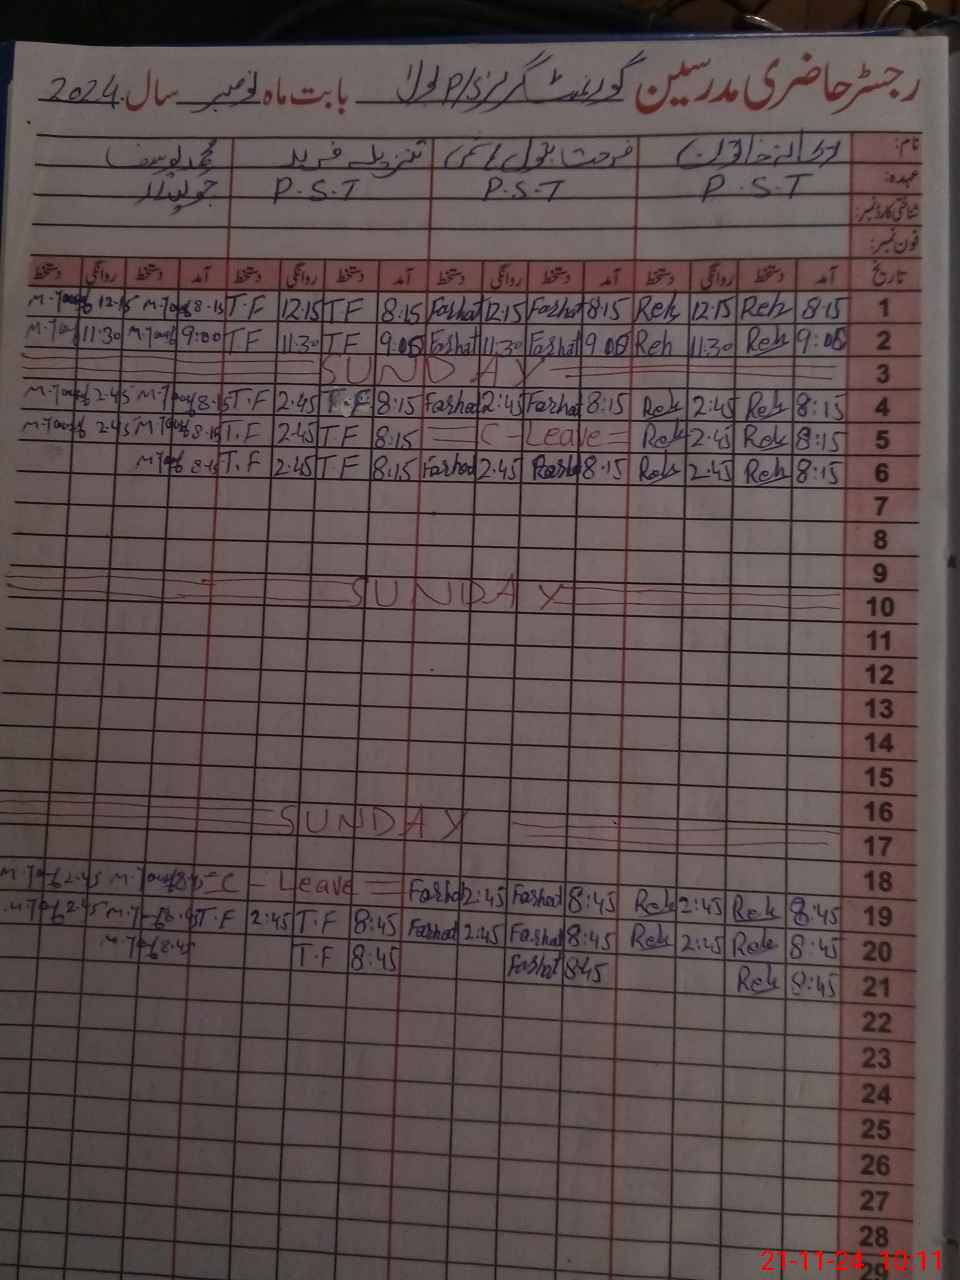 رجسٹر حاضری مدرسین گورنمنٹ گرلز P/S لولائ بابت ماہ نومبر سال 2024
نام: فرحت بتول تنزیلہ فرید محمد یوسف
عہدہ: P.S.T P.S.T P.S.T چوکیدار
شناختی کارڈ نمبر:
فون نمبر:
تاریخ آمد دستخط روانگی دستخط آمد دستخط روانگی دستخط آمد دستخط روانگی دستخط آمد دستخط روانگی دستخط
1 8:15 Reh 12:15 Reh 8:15 Farhat 12:15 Farhat 8:15 T.F 12:15 T.F 8:15 M.Yousf 12:15 M.Yousf
2 9:00 Reh 11:30 Reh 9:00 Farhat 11:30 Farhat 9:00 T.F 11:30 T.F 9:00 M.Yousf 11:30 M.Yousf
3 SUNDAY
4 8:15 Reh 2:45 Reh 8:15 Farhat 2:45 Farhat 8:15 T.F 2:45 T.F 8:15 M.Yousf 2:45 M.Yousf
5 8:15 Reh 2:45 Reh C-Leave 8:15 T.F 2:45 T.F 8:15 M.Yousf 2:45 M.Yousf
6 8:15 Reh 2:45 Reh 8:15 Farhat 2:45 Farhat 8:15 T.F 2:45 T.F 8:15 M.Yousf
7
8
9
10 SUNDAY
11
12
13
14
15
16
17 SUNDAY
18
19 8:45 Reh 2:45 Reh 8:45 Farhat 2:45 Farhat C-Leave 8:45 M.Yousf 2:45 M.Yousf
20 8:45 Reh 2:45 Reh 8:45 Farhat 2:45 Farhat 8:45 T.F 2:45 T.F 8:45 M.Yousf 2:45 M.Yousf
21 8:45 Reh 8:45 Farhat 8:45 T.F 8:45 M.Yousf
22
23
24
25
26
27
28
29
21-11-24 10:11